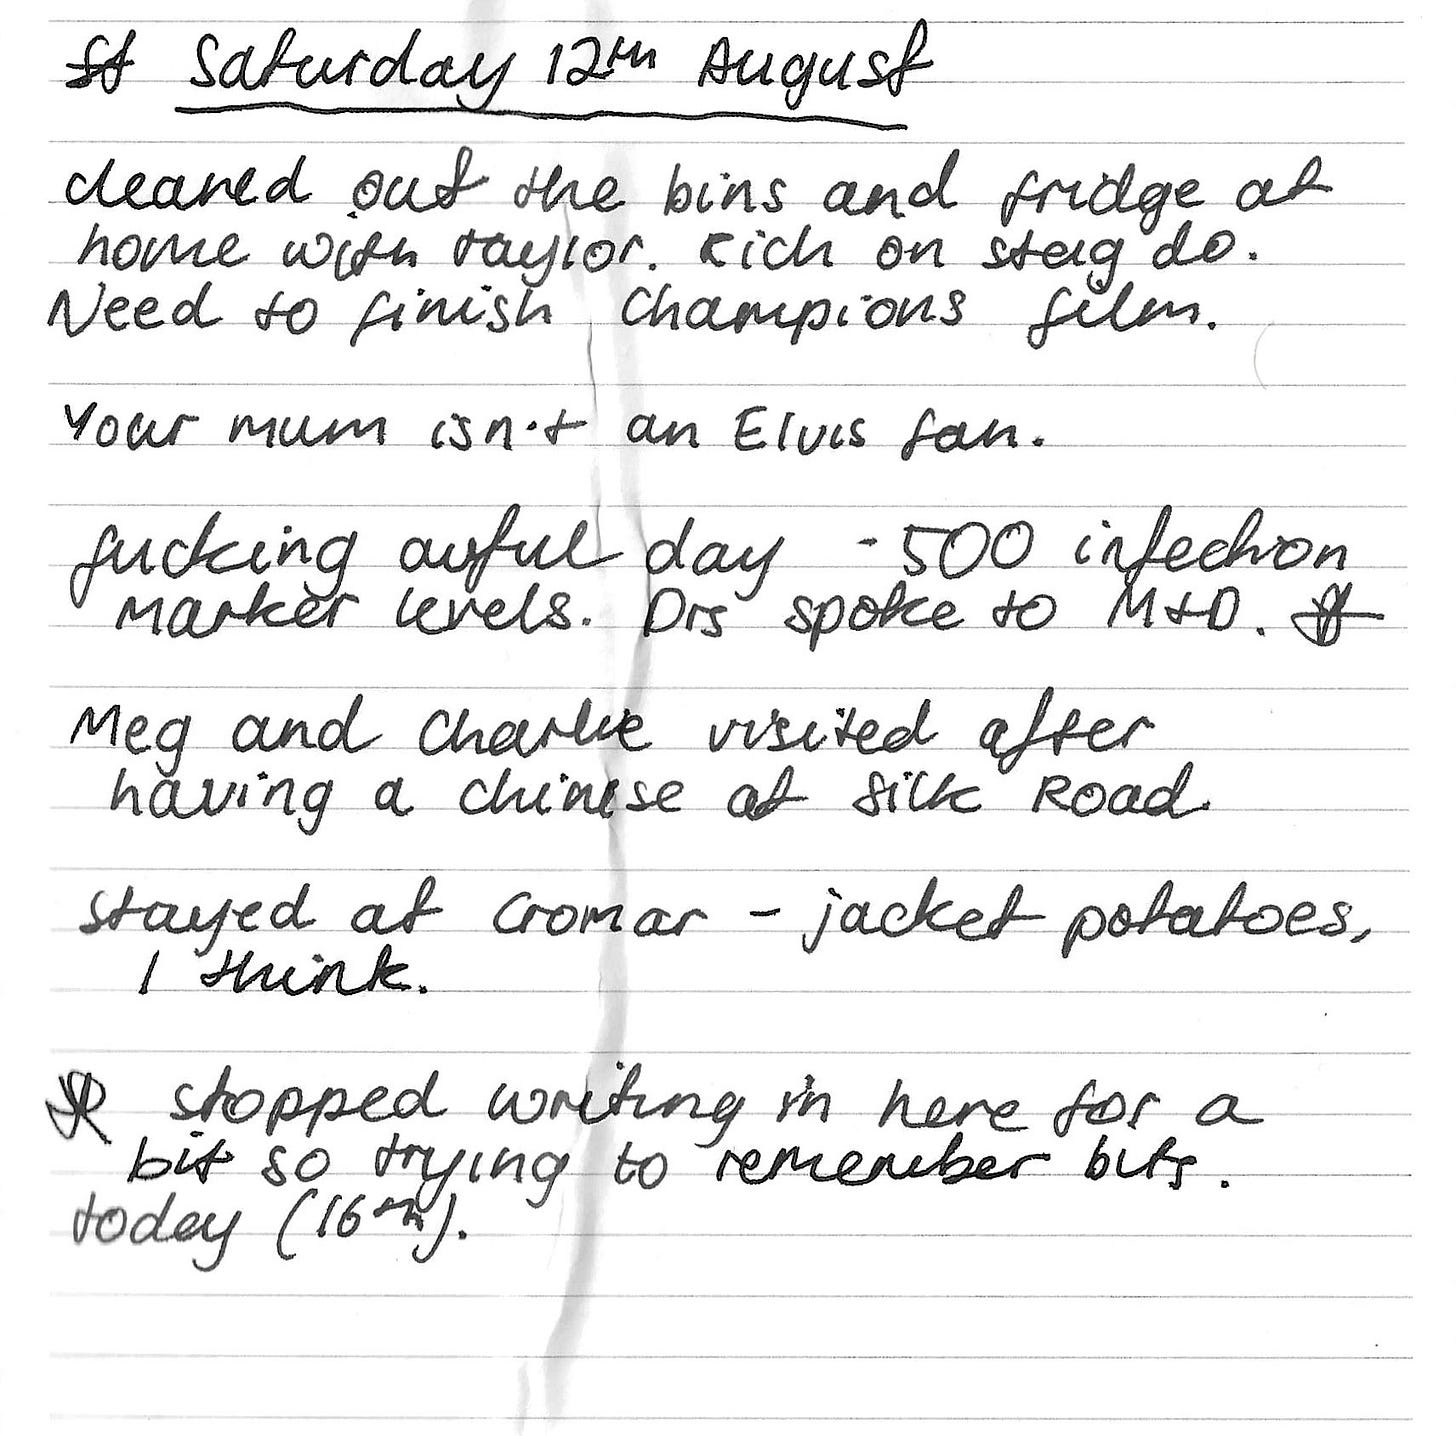 Saturday 12th August
cleared out the bins and fridge at
home with taylor. Rich on stag do.
Need to finish Champions film.
Your mum isn't an Elvis fan.
fucking awful day - 500 infection
marker levels. Drs spoke to M+D.
Meg and Charlie visited after
having a chinese at Silk Road.
stayed at Cromar - jacket potatoes,
I think.
stopped writing in here for a
bit so trying to remember bits.
today (16th).